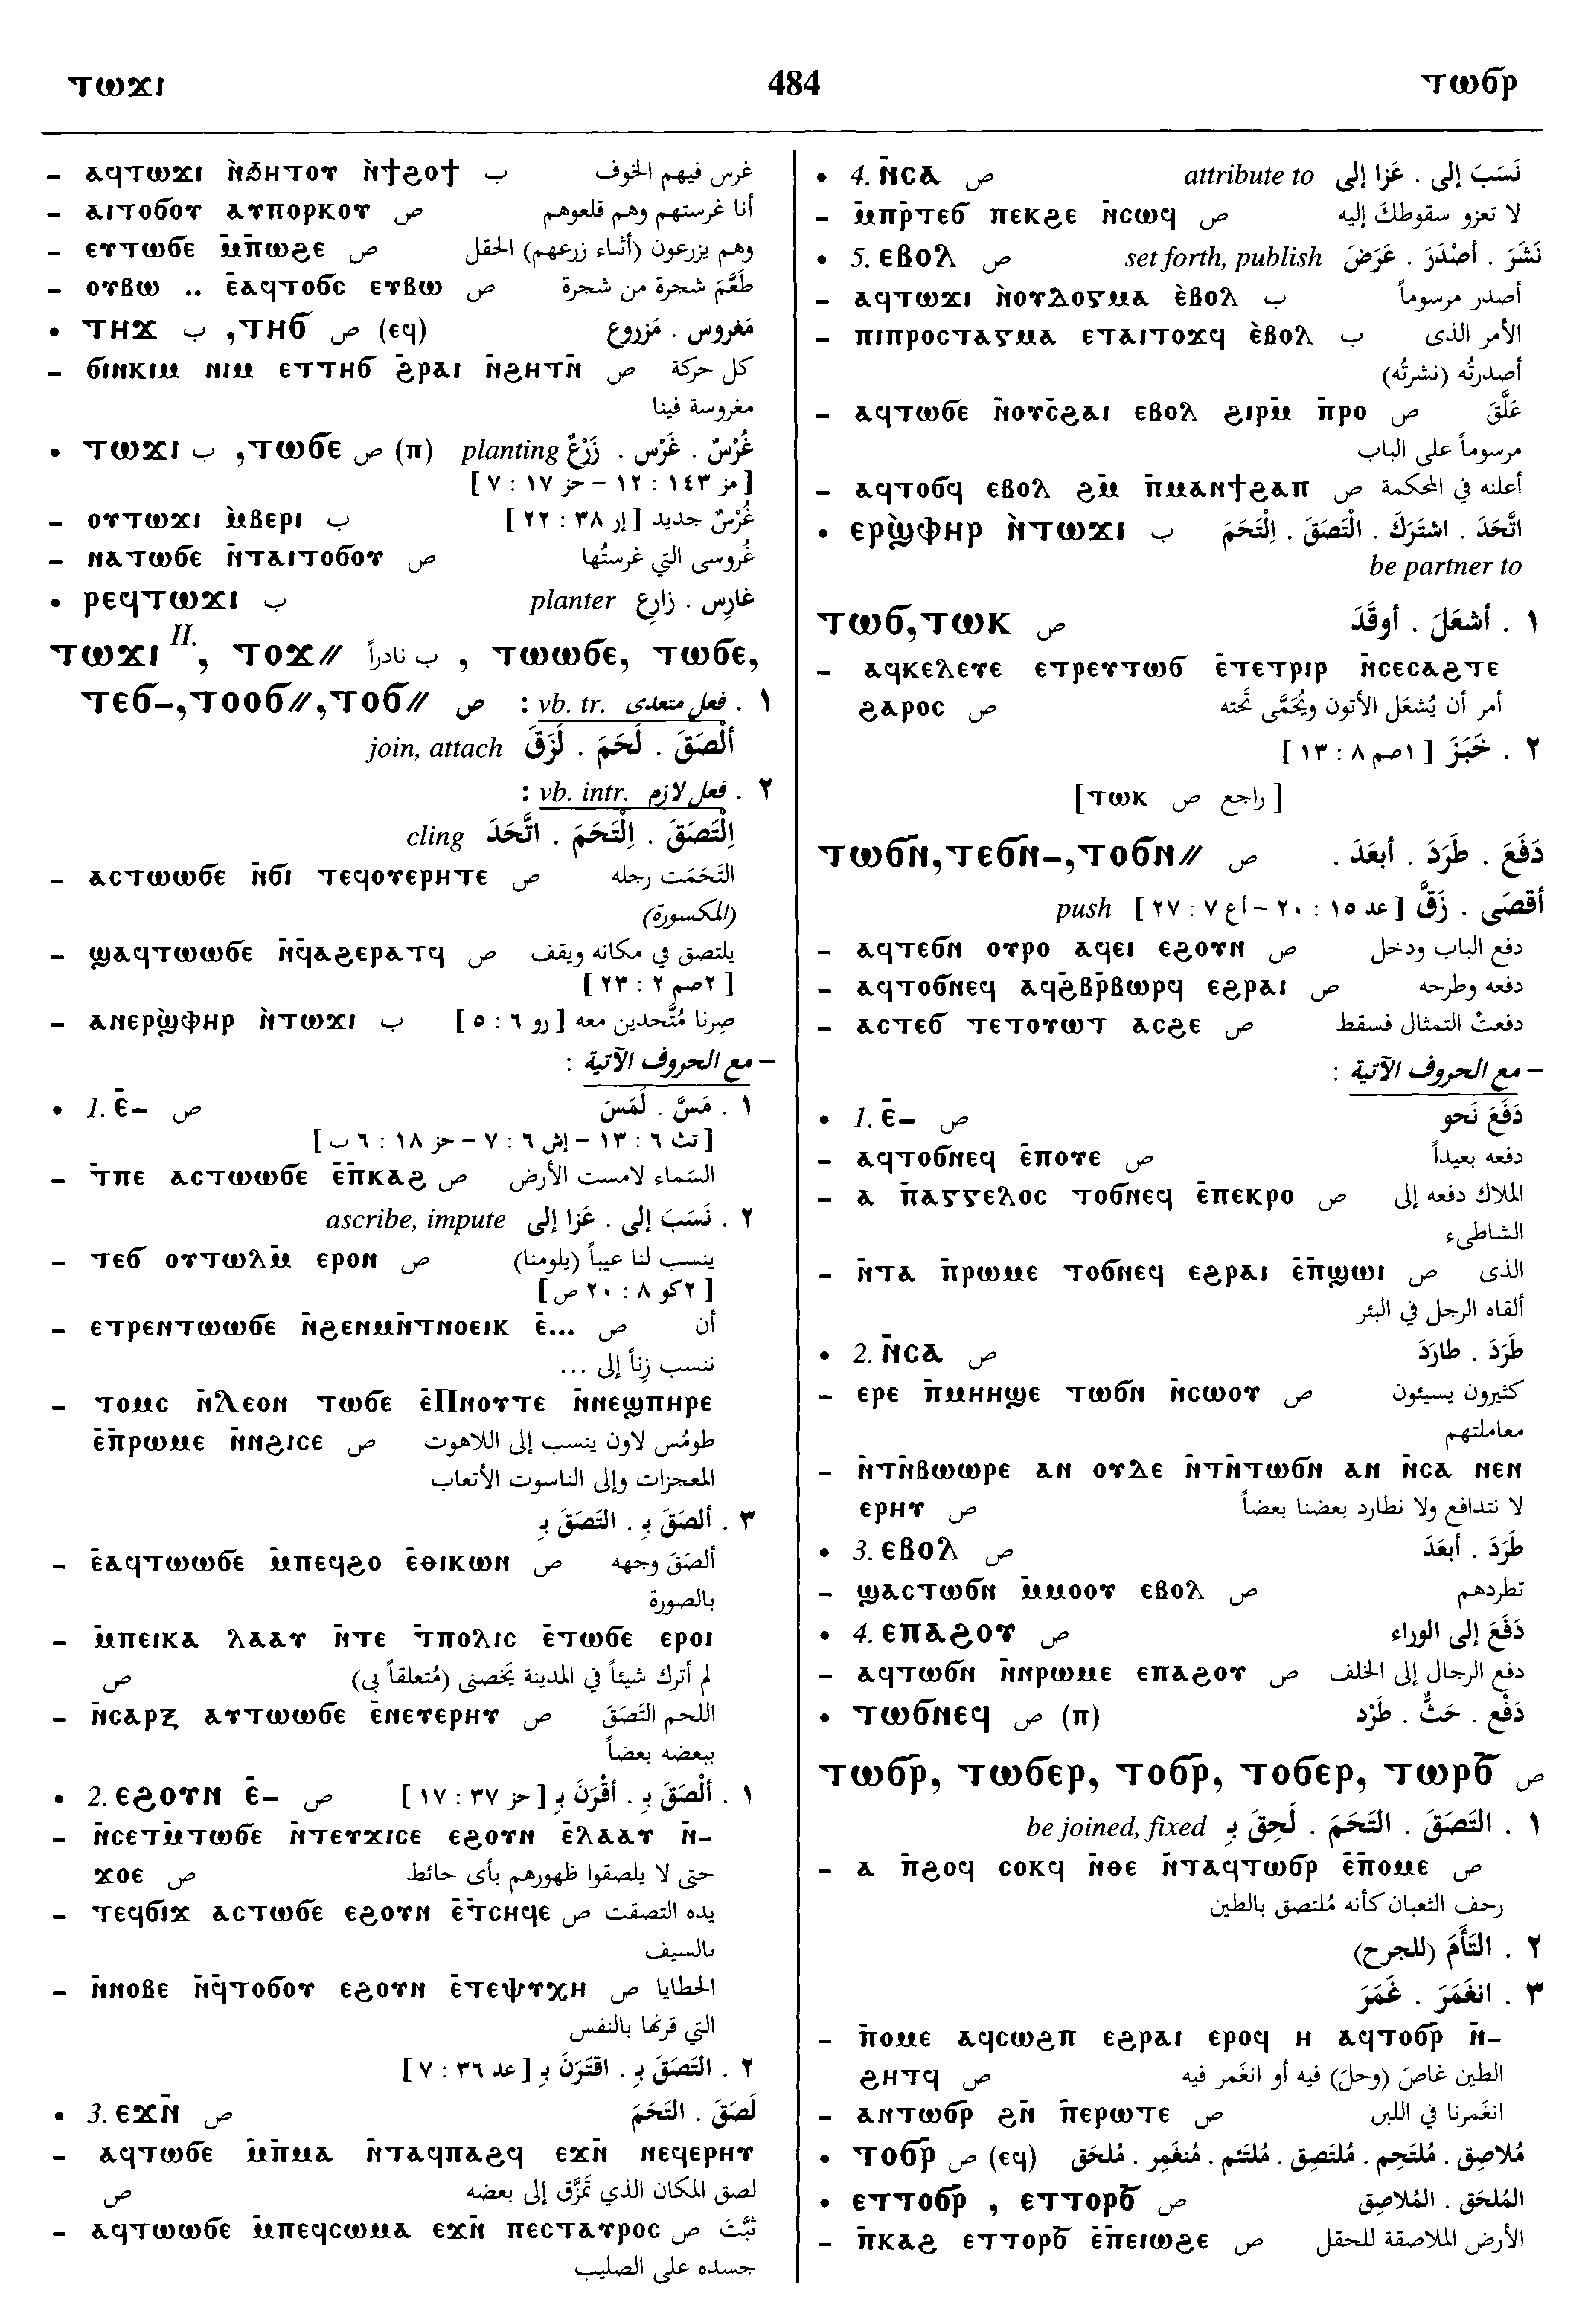 ⲧⲱϫⲓ 484 ⲧⲱϭⲣ̅
– ⲁϥⲧⲱϫⲓ ⲛ̀ϧⲏⲧⲟⲩ ⲛ̀ϯϩⲟϯ ب غرس فيهم الخوف
– ⲁⲓⲧⲟϭⲟⲩ ⲁⲩⲡⲟⲣⲕⲟⲩ ص أنا غرستهم وهم قلعوهم
– ⲉⲩⲧⲱϭⲉ ⲙ̅ⲡⲱϩⲉ ص وهم يزرعون (أثناء زرعهم) الحقل
– ⲟⲩⲃⲱ .. ⲉ̅ⲁϥⲧⲟϭⲥ ⲉⲩⲃⲱ ص طَعَّمَ شجرة من شجرة
• ⲧⲏϫ ب ,ⲧⲏϭ ص (ⲉϥ) مَغروس . مَزروع
– ϭⲓⲛⲕⲓⲙ ⲛⲓⲙ ⲉⲧⲧⲏϭ ϩ̅ⲣⲁⲓ ⲛ̅ϩⲏⲧⲛ̅ ص كل حركة
مغروسة فينا
• ⲧⲱϫⲓ ب ,ⲧⲱϭⲉ ص (ⲡ) planting غُرْسٌ . غَرْس . زَرْعٌ
[مز ١٤٣ : ١٢ – حز ١٧ : ٧]
– ⲟⲩⲧⲱϫⲓ ⲙ̀ⲃⲉⲣⲓ ب غُرْسٌ جديد [إر ٣٨ : ٢٢]
– ⲛⲁⲧⲱϭⲉ ⲛ̅ⲧⲁⲓⲧⲟϭⲟⲩ ص غُروسى التي غرستُها
• ⲣⲉϥⲧⲱϫⲓ ب planter غارِس . زارِع
ⲧⲱϫⲓ II., ⲧⲟϫ// ب نادراً , ⲧⲱⲱϭⲉ, ⲧⲱϭⲉ,
ⲧⲉϭ–,ⲧⲟⲟϭ//,ⲧⲟϭ// ص ١ . فعل متعدى vb. tr. :
ألْصَقَ . لَحَمَ . لَزَقَ join, attach
٢ . فعل لازم vb. intr. :
اِلْتَصَقَ . اِلْتَحَمَ . اتَّحَدَ cling
– ⲁⲥⲧⲱⲱϭⲉ ⲛ̅ϭⲓ ⲧⲉϥⲟⲩⲉⲣⲏⲧⲉ ص التَحَمَت رجله
(المكسورة)
– ϣⲁϥⲧⲱⲱϭⲉ ⲛ̅ϥⲁϩⲉⲣⲁⲧϥ ص يلتصق في مكانه ويقف
[٢صم ٢ : ٢٣]
– ⲁⲛⲉⲣϣ̀ⲫⲏⲣ ⲛ̀ⲧⲱϫⲓ ب صِرنا مُتَّحدين معه [رو ٦ : ٥]
– مع الحروف الآتية :
• 1. ⲉ̅– ص ١ . مَسَّ . لَمَسَ
[تث ٦ : ١٣ – إش ٦ : ٧ – حز ١٨ : ٦ ب]
– ⲧ̅ⲡⲉ ⲁⲥⲧⲱⲱϭⲉ ⲉ̅ⲡ̅ⲕⲁϩ ص السَماء لامست الأرض
٢ . نَسَبَ إلى . عَزا إلى ascribe, impute
– ⲧⲉϭ ⲟⲩⲧⲱⲗⲙ̅ ⲉⲣⲟⲛ ص ينسب لنا عيباً (يلومنا)
[٢كو ٨ : ٢٠ ص]
– ⲉⲧⲣⲉⲛⲧⲱⲱϭⲉ ⲛ̅ϩⲉⲛⲙⲛ̅ⲧⲛⲟⲉⲓⲕ ⲉ̅... ص أن
ننسب زِناً إلى ...
– ⲧⲟⲙⲥ ⲛ̅ⲗⲉⲟⲛ ⲧⲱϭⲉ ⲉ̅Ⲡⲛⲟⲩⲧⲉ ⲛ̅ⲛⲉϣⲡⲏⲣⲉ
ⲉ̅ⲡ̅ⲣⲱⲙⲉ ⲛ̅ⲛϩⲓⲥⲉ ص طومُس لاون ينسب إلى اللاهوت
المعجزات وإلى الناسوت الأتعاب
٣ . ألصَقَ بِـ . التَصَقَ بِـ
– ⲉ̅ⲁϥⲧⲱⲱϭⲉ ⲙ̅ⲡⲉϥϩⲟ ⲉ̅ⲑⲓⲕⲱⲛ ص ألصَقَ وجهه
بالصورة
– ⲙ̅ⲡⲉⲓⲕⲁ ⲗⲁⲁⲩ ⲛ̅ⲧⲉ ⲧ̅ⲡⲟⲗⲓⲥ ⲉ̅ⲧⲱϭⲉ ⲉⲣⲟⲓ
لم أترك شيئاً في المدينة يَخصنى (مُتعلقاً بى) ص
– ⲛ̅ⲥⲁⲣⲝ ⲁⲩⲧⲱⲱϭⲉ ⲉ̅ⲛⲉⲩⲉⲣⲏⲩ ص اللحم التَصَقَ
ببعضه بعضاً
• 2. ⲉϩⲟⲩⲛ ⲉ̅– ص ١ . ألْصَقَ بِـ . أقْرَنَ بِـ [حز ٣٧ : ١٧]
– ⲛ̅ⲥⲉⲧⲙ̅ⲧⲱϭⲉ ⲛ̅ⲧⲉⲩϫⲓⲥⲉ ⲉϩⲟⲩⲛ ⲉ̅ⲗⲁⲁⲩ ⲛ̅–
ϫⲟⲉ ص حتى لا يلصقوا ظهورهم بأى حائط
– ⲧⲉϥϭⲓϫ ⲁⲥⲧⲱϭⲉ ⲉϩⲟⲩⲛ ⲉ̅ⲧ̅ⲥⲏϥⲉ ص يده التصقت
بالسيف
– ⲛ̅ⲛⲟⲃⲉ ⲛ̅ϥ̅ⲧⲟϭⲟⲩ ⲉϩⲟⲩⲛ ⲉ̅ⲧⲉⲯⲩⲭⲏ ص الخطايا
التي قرنها بالنفس
٢ . التَصَقَ بِـ . اقتَرَنَ بِـ [عد ٣٦ : ٧]
• 3. ⲉϫⲛ̅ ص لَصَقَ . التَحَمَ
– ⲁϥⲧⲱϭⲉ ⲙ̅ⲡ̅ⲙⲁ ⲛ̅ⲧⲁϥⲡⲁϩϥ ⲉϫⲛ̅ ⲛⲉϥⲉⲣⲏⲩ
لصق المكان الذي تَمَزَّق إلى بعضه ص
– ⲁϥⲧⲱⲱϭⲉ ⲙ̅ⲡⲉϥⲥⲱⲙⲁ ⲉϫⲛ̅ ⲡⲉⲥⲧⲁⲩⲣⲟⲥ ص ثَبَّتَ
جسده على الصليب
• 4. ⲛ̅ⲥⲁ ص نَسَبَ إلى . عَزا إلى attribute to
– ⲙ̅ⲡⲣ̅ⲧⲉϭ ⲡⲉⲕϩⲉ ⲛ̅ⲥⲱϥ ص لا تعزو سقوطكَ إليه
• 5. ⲉⲃⲟⲗ ص نَشَرَ . أصْدَرَ . عَرَضَ set forth, publish
– ⲁϥⲧⲱϫⲓ ⲛ̀ⲟⲩⲇⲟⲅⲙⲁ ⲉ̀ⲃⲟⲗ ب أصدر مرسوماً
– ⲡⲓⲡⲣⲟⲥⲧⲁⲅⲙⲁ ⲉⲧⲁⲓⲧⲟϫϥ ⲉ̀ⲃⲟⲗ ب الأمر الذى
أصدرتُه (نشرتُه)
– ⲁϥⲧⲱϭⲉ ⲛ̅ⲟⲩⲥ̅ϩⲁⲓ ⲉⲃⲟⲗ ϩⲓⲣⲙ̅ ⲡ̅ⲣⲟ ص عَلَّقَ
مرسوماً على الباب
– ⲁϥⲧⲟϭϥ ⲉⲃⲟⲗ ϩⲙ̅ ⲡ̅ⲙⲁⲛϯϩⲁⲡ ص أعلنه في المحكمة
• ⲉⲣϣ̀ⲫⲏⲣ ⲛ̀ⲧⲱϫⲓ ب اتَّحَدَ . اشتَرَكَ . الْتَصَقَ . اِلْتَحَمَ
be partner to
ⲧⲱϭ,ⲧⲱⲕ ص ١ . أشعَلَ . أوقَدَ
– ⲁϥⲕⲉⲗⲉⲩⲉ ⲉⲧⲣⲉⲩⲧⲱϭ ⲉ̅ⲧⲉⲧⲣⲓⲣ ⲛ̅ⲥⲉⲥⲁϩⲧⲉ
ϩⲁⲣⲟⲥ ص أمر أن يُشعَل الأتون ويُحَمَّى تَحته
٢ . خَبَزَ [١صم ٨ : ١٣]
[راجع ص ⲧⲱⲕ]
ⲧⲱϭⲛ̅,ⲧⲉϭⲛ̅–,ⲧⲟϭⲛ// ص دَفَعَ . طَرَدَ . أبعَدَ .
أقصَى . زَقَّ [عد ١٥ : ٢٠ – أع ٧ : ٢٧] push
– ⲁϥⲧⲉϭⲛ ⲟⲩⲣⲟ ⲁϥⲉⲓ ⲉϩⲟⲩⲛ ص دفع الباب ودخل
– ⲁϥⲧⲟϭⲛⲉϥ ⲁϥϩ̅ⲃⲣ̅ⲃⲱⲣϥ ⲉϩⲣⲁⲓ ص دفعه وطرحه
– ⲁⲥⲧⲉϭ ⲧⲉⲧⲟⲩⲱⲧ ⲁⲥϩⲉ ص دفعتْ التمثال فسقط
– مع الحروف الآتية :
• 1. ⲉ̅– ص دَفَعَ نَحو
– ⲁϥⲧⲟϭⲛⲉϥ ⲉ̅ⲡⲟⲩⲉ ص دفعه بعيداً
– ⲁ ⲡ̅ⲁⲅⲅⲉⲗⲟⲥ ⲧⲟϭⲛⲉϥ ⲉ̅ⲡⲉⲕⲣⲟ ص الملاك دفعه إلى
الشاطىء
– ⲛ̅ⲧⲁ ⲡ̅ⲣⲱⲙⲉ ⲧⲟϭⲛⲉϥ ⲉϩⲣⲁⲓ ⲉ̅ⲡ̅ϣⲱⲓ ص الذى
ألقاه الرجل في البئر
• 2. ⲛ̅ⲥⲁ ص طَرَدَ . طارَدَ
– ⲉⲣⲉ ⲡ̅ⲙⲏⲏϣⲉ ⲧⲱϭⲛ ⲛ̅ⲥⲱⲟⲩ ص كثيرون يسيئون
معاملتهم
– ⲛ̅ⲧⲛ̅ⲃⲱⲱⲣⲉ ⲁⲛ ⲟⲩⲇⲉ ⲛ̅ⲧⲛ̅ⲧⲱϭⲛ ⲁⲛ ⲛ̅ⲥⲁ ⲛⲉⲛ
ⲉⲣⲏⲩ ص لا نتدافع ولا نطارد بعضنا بعضاً
• 3. ⲉⲃⲟⲗ ص طَرَدَ . أبعَدَ
– ϣⲁⲥⲧⲱϭⲛ ⲙ̅ⲙⲟⲟⲩ ⲉⲃⲟⲗ ص تطردهم
• 4. ⲉⲡⲁϩⲟⲩ ص دَفَعَ إلى الوراء
– ⲁϥⲧⲱϭⲛ ⲛ̅ⲛⲣⲱⲙⲉ ⲉⲡⲁϩⲟⲩ ص دفع الرجال إلى الخلف
• ⲧⲱϭⲛⲉϥ ص (ⲡ) دَفْع . حَثٌّ . طَرْد
ⲧⲱϭⲣ̅, ⲧⲱϭⲉⲣ, ⲧⲟϭⲣ̅, ⲧⲟϭⲉⲣ, ⲧⲱⲣϭ̅ ص
١ . التَصَقَ . التَحَمَ . لَحِقَ بِـ be joined, fixed
– ⲁ ⲡ̅ϩⲟϥ ⲥⲟⲕϥ ⲛ̅ⲑⲉ ⲛ̅ⲧⲁϥⲧⲱϭⲣ ⲉ̅ⲡⲟⲙⲉ ص
زحف الثعبان كأنه مُلتصق بالطين
٢ . التَأَمَ (للجرح)
٣ . انغَمَرَ . غَمَرَ
– ⲡ̅ⲟⲙⲉ ⲁϥⲥⲱϩⲡ ⲉϩⲣⲁⲓ ⲉⲣⲟϥ ⲏ ⲁϥⲧⲟϭⲣ̅ ⲛ̅–
ϩⲏⲧϥ ص الطين غاصَ (وحلَ) فيه أو انغَمر فيه
– ⲁⲛⲧⲱϭⲣ̅ ϩⲛ̅ ⲡ̅ⲉⲣⲱⲧⲉ ص انغَمرنا في اللبن
• ⲧⲟϭⲣ̅ ص (ⲉϥ) مُلاصِق . مُلتَحِم . مُلتَصِق . مُلتَئم . مُنغَمِر . مُلحَق
• ⲉⲧⲧⲟϭⲣ , ⲉⲧⲧⲟⲣϭ̅ ص المُلحَق . المُلاصِق
– ⲡ̅ⲕⲁϩ ⲉⲧⲧⲟⲣϭ̅ ⲉ̅ⲡⲉⲓⲱϩⲉ ص الأرض الملاصقة للحقل